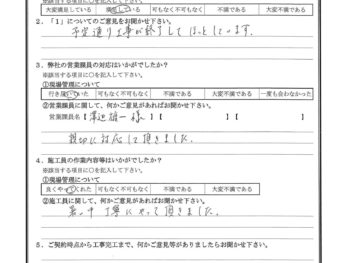 ※該当する項目に○を記入して下さい。
大変満足している 満足している 可もなく不可もなく 不満である 大変不満である
2．「1」についてのご意見をお聞かせ下さい。
予定通り工事が終了してほっとしています。
3．弊社の営業課員の対応はいかがでしたか？
※該当する項目に○を記入して下さい。
①現場管理について
行き届いていた 可もなく不可もなく 不満である 大変不満である 一度も会わなかった
②営業課員に関して、何かご意見があればお聞かせ下さい。
営業課員名【 澤辺 雄一 様 】【 】
親切に対応して頂きました。
4．施工員の作業内容等はいかがでしたか？
※該当する項目に○を記入して下さい。
①現場管理について
良くやってくれた 可もなく不可もなく 不満である 大変不満である
②施工員に関して、何かご意見がありればお聞かせ下さい。
暑い中 丁寧にやって頂きました。
5．ご契約時点から工事完工まで、何かご意見等がありましたらお聞かせ下さい。